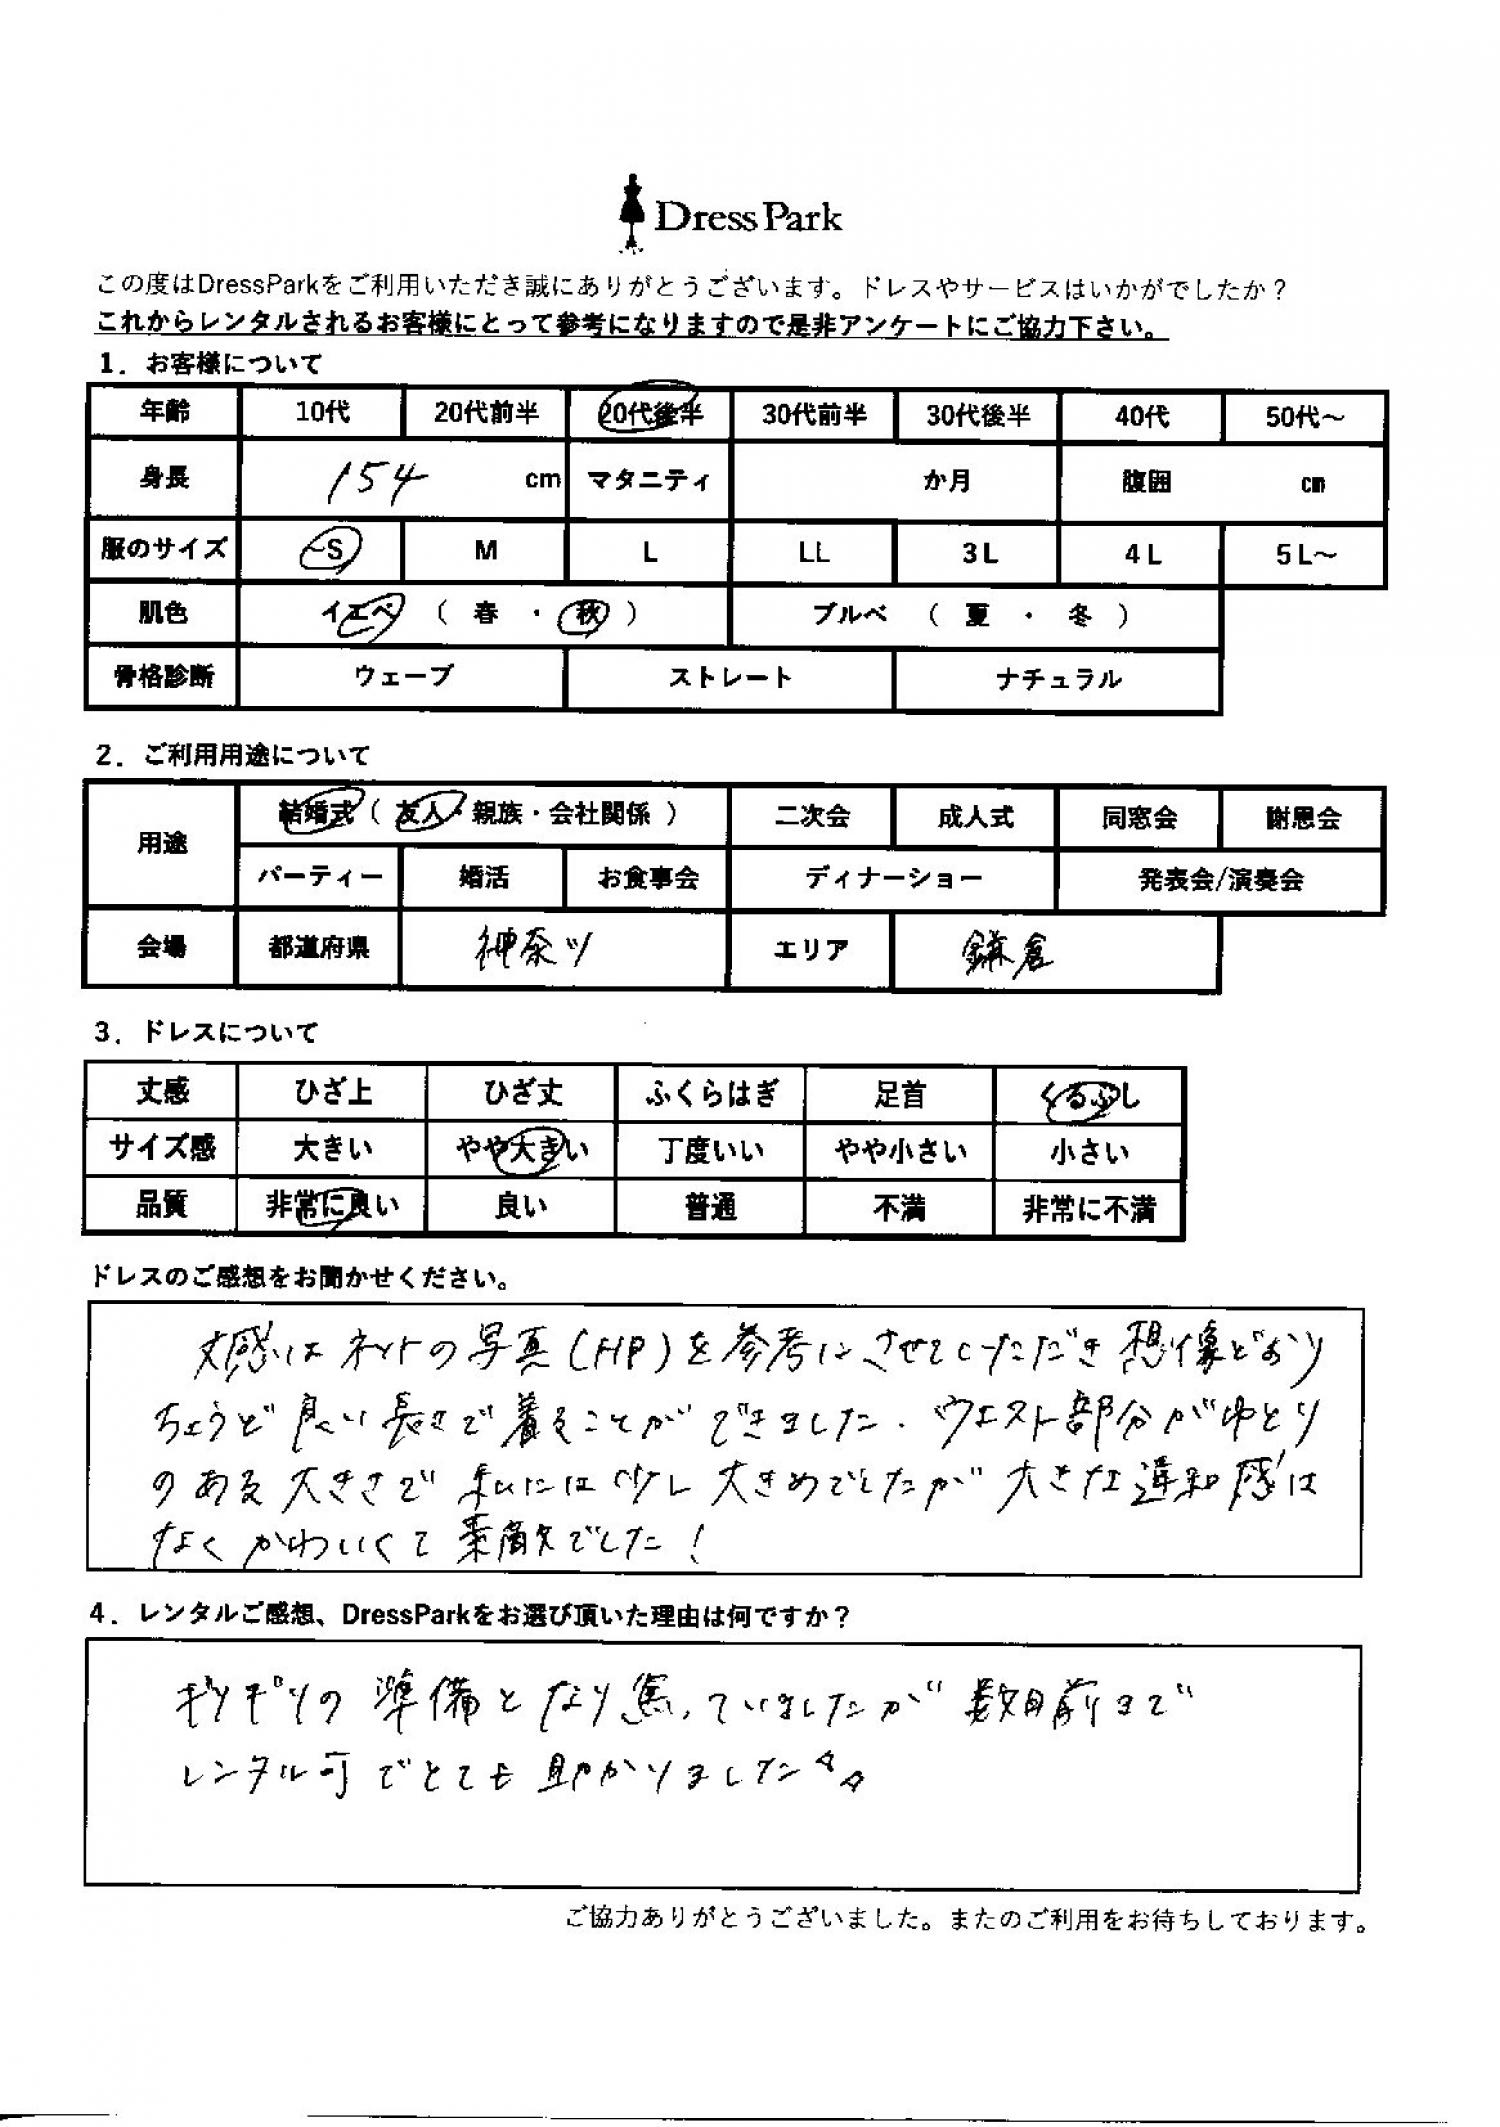 Dress Park
この度はDressParkをご利用いただき誠にありがとうございます。ドレスやサービスはいかがでしたか？
これからレンタルされるお客様にとって参考になりますので是非アンケートにご協力下さい。
1．お客様について
年齢 10代 20代前半 20代後半 30代前半 30代後半 40代 50代～
身長 154 cm マタニティ か月 腹囲 cm
服のサイズ ~S M L LL 3L 4L 5L～
肌色 イエベ （ 春 ・ 秋 ） ブルベ （ 夏 ・ 冬 ）
骨格診断 ウェーブ ストレート ナチュラル
2．ご利用用途について
用途 結婚式（ 友人・親族・会社関係 ） 二次会 成人式 同窓会 謝恩会
パーティー 婚活 お食事会 ディナーショー 発表会/演奏会
会場 都道府県 神奈川 エリア 鎌倉
3．ドレスについて
丈感 ひざ上 ひざ丈 ふくらはぎ 足首 くるぶし
サイズ感 大きい やや大きい 丁度いい やや小さい 小さい
品質 非常に良い 良い 普通 不満 非常に不満
ドレスのご感想をお聞かせください。
丈感はネットの写真(HP)を参考にさせていただき想像どおり
ちょうど良い長さで着ることができました.ウエスト部分がゆとり
のある大きさで私には少し大きめでしたが大きな違和感は
なくかわいくて素敵でした!
4．レンタルご感想、DressParkをお選び頂いた理由は何ですか？
ギリギリの準備となり焦っていましたが数日前まで
レンタル可でとても助かりました
ご協力ありがとうございました。またのご利用をお待ちしております。